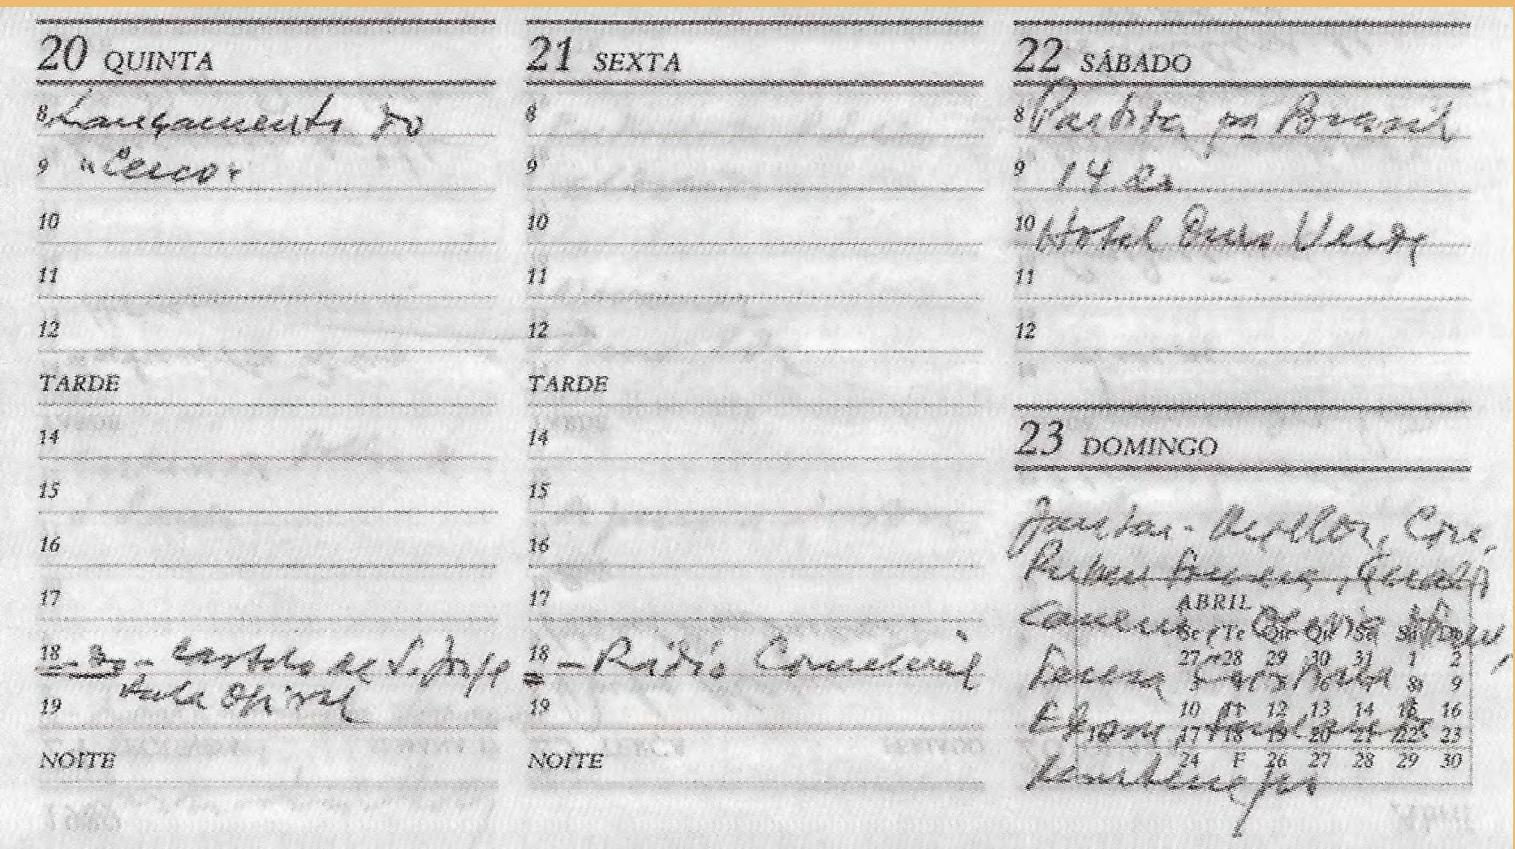 20 QUINTA
8 Lançamento do
9 "Cerco"
10
11
12
TARDE
14
15
16
17
18 - 30 - Castelo de S. Jorge
19
NOITE
21 SEXTA
8
9
10
11
12
TARDE
14
15
16
17
18 - Rádio Comercial
19
NOITE
22 SÁBADO
8 Partida pa Brasil
9 14
10 Hotel Ouro Verde
11
12
23 DOMINGO
Jantar -
Ruben Fonseca,
ABRIL
Se Te Qu Qu Se Sá Do
27 28 29 30 31 1 2
3 4 5 6 7 8 9
10 11 12 13 14 15 16
17 18 19 20 21 22 23
24 F 26 27 28 29 30
Teresa Cristina